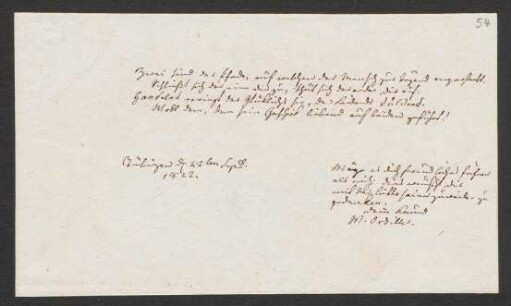 54
Zwei sind der Pfade, auf welchen der Mensch zur Tugend emporstrebt
Schließt sich der eine dir zu, thut sich der andre dir auf
Handelnd erringt der Glückliche sie, der Leidende duldend.
Wohl dem, den sein Geschick liebend auf beiden geführt!
Tübingen d. 22ten Sept.
1822.
Mög es dich freundlicher führen
als mich; dies wünscht dir
mit der Bitte seiner zuweilen zu
gedenken.
dein Freund